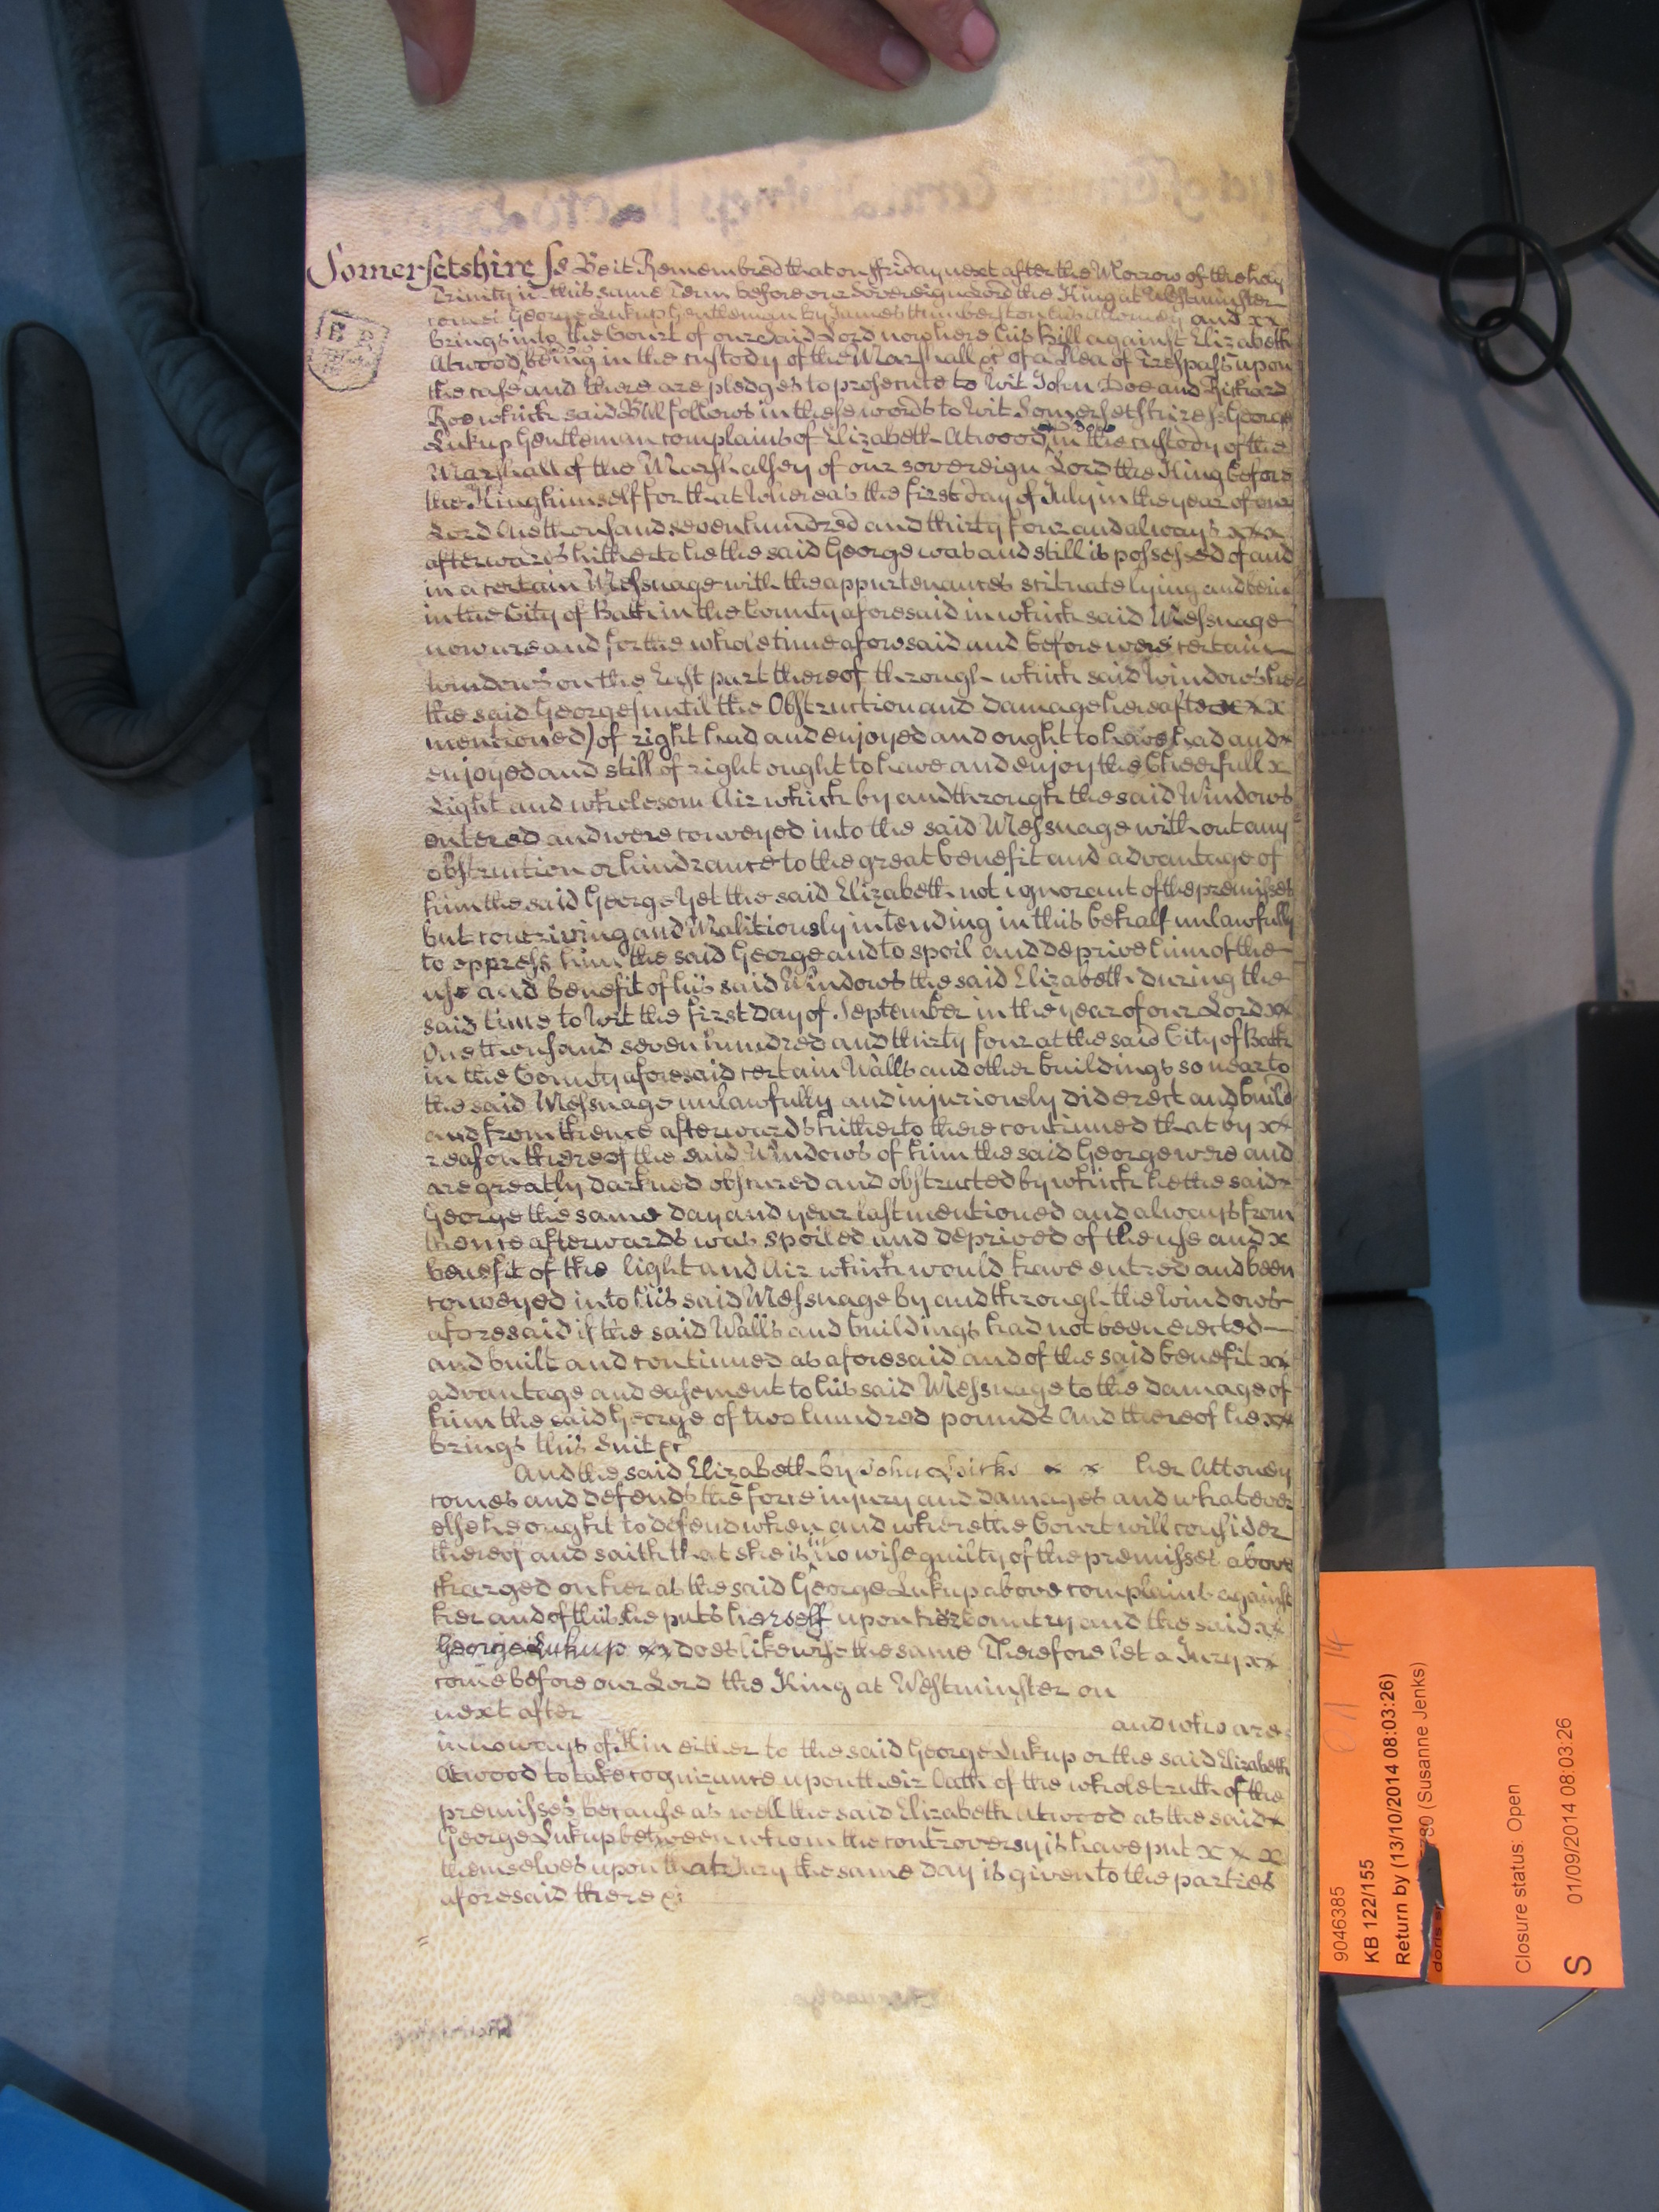 Somersetshire ss Be it Remembred that on ffriday next after the Morrow of the holy
Trinity in this same Term before our Sovereign Lord the King at Westminster
comes George Lukup Gentleman by James Humberston his Attorney and xx
brings into the Court of our said Lord now here his Bill against Elizabeth
Atwood being in the custody of the Marshall &c of a Plea of Trespass upon
the case and there are pledges to prosecute to Wit John Doe and Richard
Roe which said Bill follows in these words to Wit Somersetshire ss George
Lukup Gentleman complains of Elizabeth Atwood in the custody of the
Marshall of the Marshalsey of our sovereign Lord the King before
the King himself for that Whereas the first day of July in the year of our
Lord One thousand seven hundred and thirty four and always xxx
afterwards hitherto he the said George was and still is possessed of and
in a certain Messuage with the appurtenances scituate lying and being
in the City of Bath in the County aforesaid in which said Messuage
now are and for the whole time aforesaid and before were certain
Windows on the East part thereof through which said Windows he
the said George (until the Obstruction and Damage hereafter xxx
mentioned) of right had and enjoyed and ought to have had and x
enjoyed and still of right ought to have and enjoy the Cheerfull x
Light and wholesom Air which by and through the said Windows
entered and were conveyed into the said Messuage without any
obstruction or hindrance to the great benefit and advantage of
him the said George Yet the said Elizabeth not ignorant of the premisses
but contriving and Malitiously intending in this behalf unlawfully
to oppress him the said George and to spoil and deprive him of the
use and benefit of his said Windows the said Elizabeth during the
said time to Wit the first Day of September in the year of our Lord xx
One thousand seven hundred and thirty four at the said City of Bath
in the County aforesaid certain Walls and other buildings so near to
the said Messuage unlawfully and injuriously did erect and build
and from thence afterwards hitherto there continued that by xx
reason thereof the said Windows of him the said George were and
are greatly darkned obscured and obstructed by which he the said x
George the same day and year last mentioned and always from
thence afterwards was spoiled and deprived of the use and x
benefit of the light and Air which would have entred and been
conveyed into his said Messuage by and through the Windows
aforesaid if the said Walls and buildings had not been erected
and built and continued as aforesaid and of the said benefit xx
advantage and easement to his said Messuage to the damage of
him the said George of two hundred pounds And thereof he xx
brings this Suit &c
And the said Elizabeth by John x x her Attoney
comes and defends the force injury and damages and whatever
else he ought to defend when and where the Court will consider
thereof and saith that she is in no wise guilty of the premisses above
charged on her as the said George Lukup above complains against
her and of this she puts herself upon her Country and the said xx
George Lukup xx does likewise the same Therefore let a Jury xx
come before our Lord the King at Westminster on
next after and who are
in noways of Kin either to the said George Lukup or the said Elizabeth
Atwood to take cognizance upon their Oath of the whole truth of the
premisses because as well the said Elizabeth Atwood as the said x
George Lukup between whom the controversy is have put x x x
themselves upon that Jury the same day is given to the parties
aforesaid there &c
9046385
KB 122/155
Return by (13/10/2014 08:03:26)
(Susanne Jenks)
Closure status: Open
S 01/09/2014 08:03:26